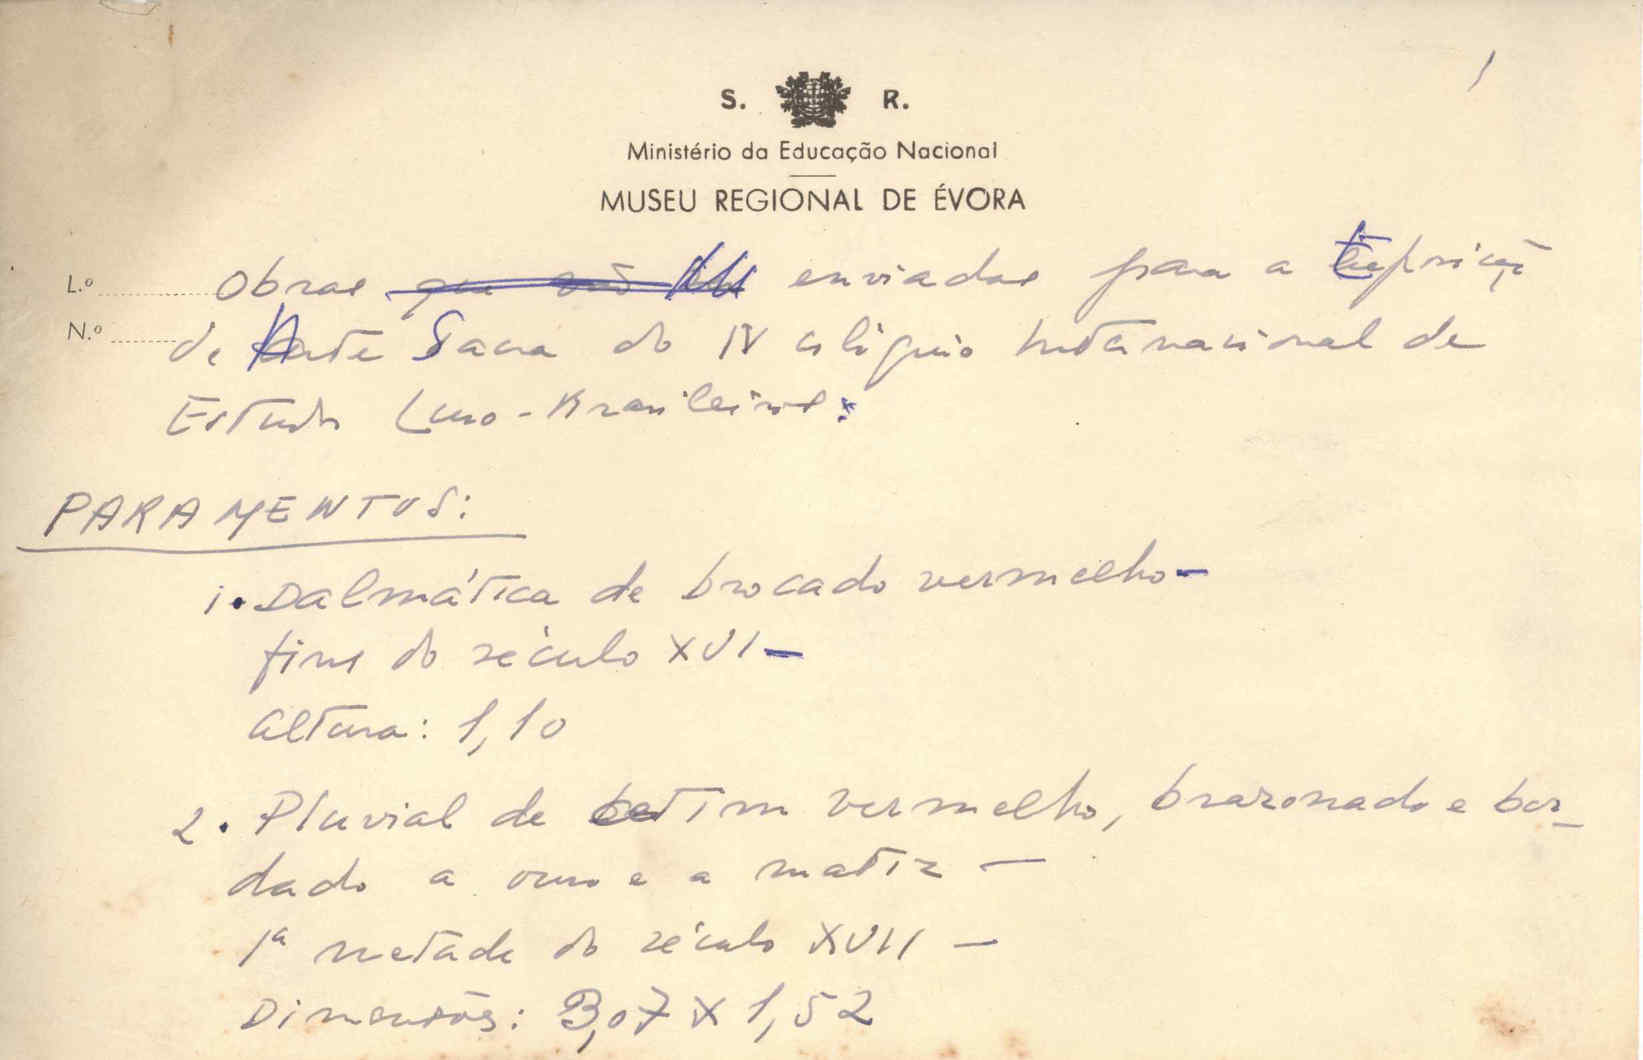 1
S. R.
Ministério da Educação Nacional
MUSEU REGIONAL DE ÉVORA
L.º Obras enviadas para a Exposição
N.º de Arte Sacra do IV Colóquio Internacional de
Estudos Luso-Brasileiros:
PARAMENTOS:
1. Dalmática de brocado vermelho -
fins do século XVI -
Altura: 1,10
2. Pluvial de setim vermelho, brazonado e bor_
dado a ouro e a matiz -
1ª metade do século XVII -
Dimensões: 3,07 X 1,52